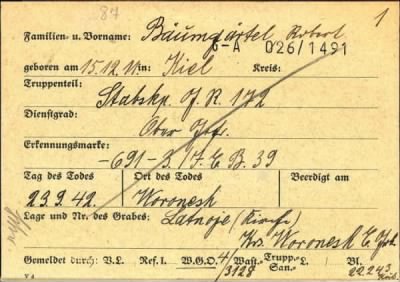 87
1
Familien- u. Vorname: Bäumgärtel Robert
G-A 026/1491
geboren am 15.12.11 in: Kiel Kreis:
Truppenteil:
Stabskp. J.R. 172
Dienstgrad:
Ober Gfr.
Erkennungsmarke:
-691- S./J.E.B. 39
Tag des Todes Ort des Todes Beerdigt am
23.9.42. Woronesh
Lage und Nr. des Grabes: Latnoje (Kirche)
Krs. Woronesh
Gemeldet durch: V.L. Ref. I. W.G.O. 4/3128 Wast.- Trupp.- San.- L. Bl.
22.2.43